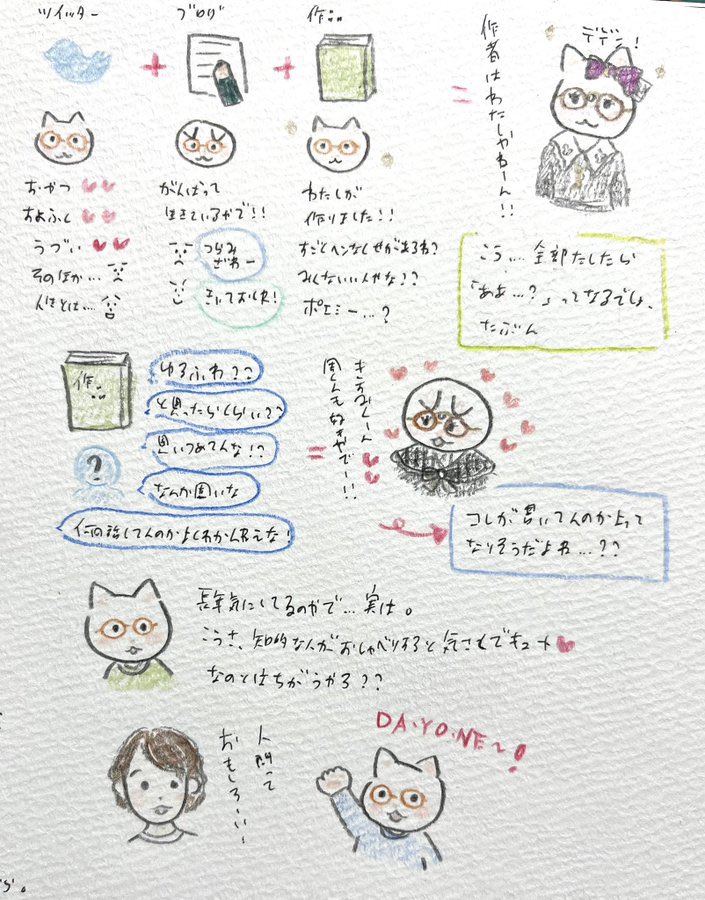 ツイッター
ブログ
作品
作者はわたしやねーん!!
デデン!
おやつ
およふく
うつい
そのほか…
人をとは…
がんばって
生きているやで!!
つらみ
ざわー
きいておくれ!
わたしが
作りました!!
すごとヘンなくせがあるね?
みんないい人やな??
ポエミー…?
こう… 全部たしたら
「ああ…?」ってなるでしょ、
たぶん
作
?
ゆるふわ??
と思ったらくらい??
思いつめてんな!?
なんか固いな
何話してんのかよくわかんねえな!
固くても好きやでー!!
コレが書いてんのか…って
なりそうだよね…??
長年気にしてるのやで…実は。
こうさ、知的な人がおしゃべりすると気さくでキュート
なのとはちがうやろ??
人間って
おもしろーい!
DA・YO・NE〜!